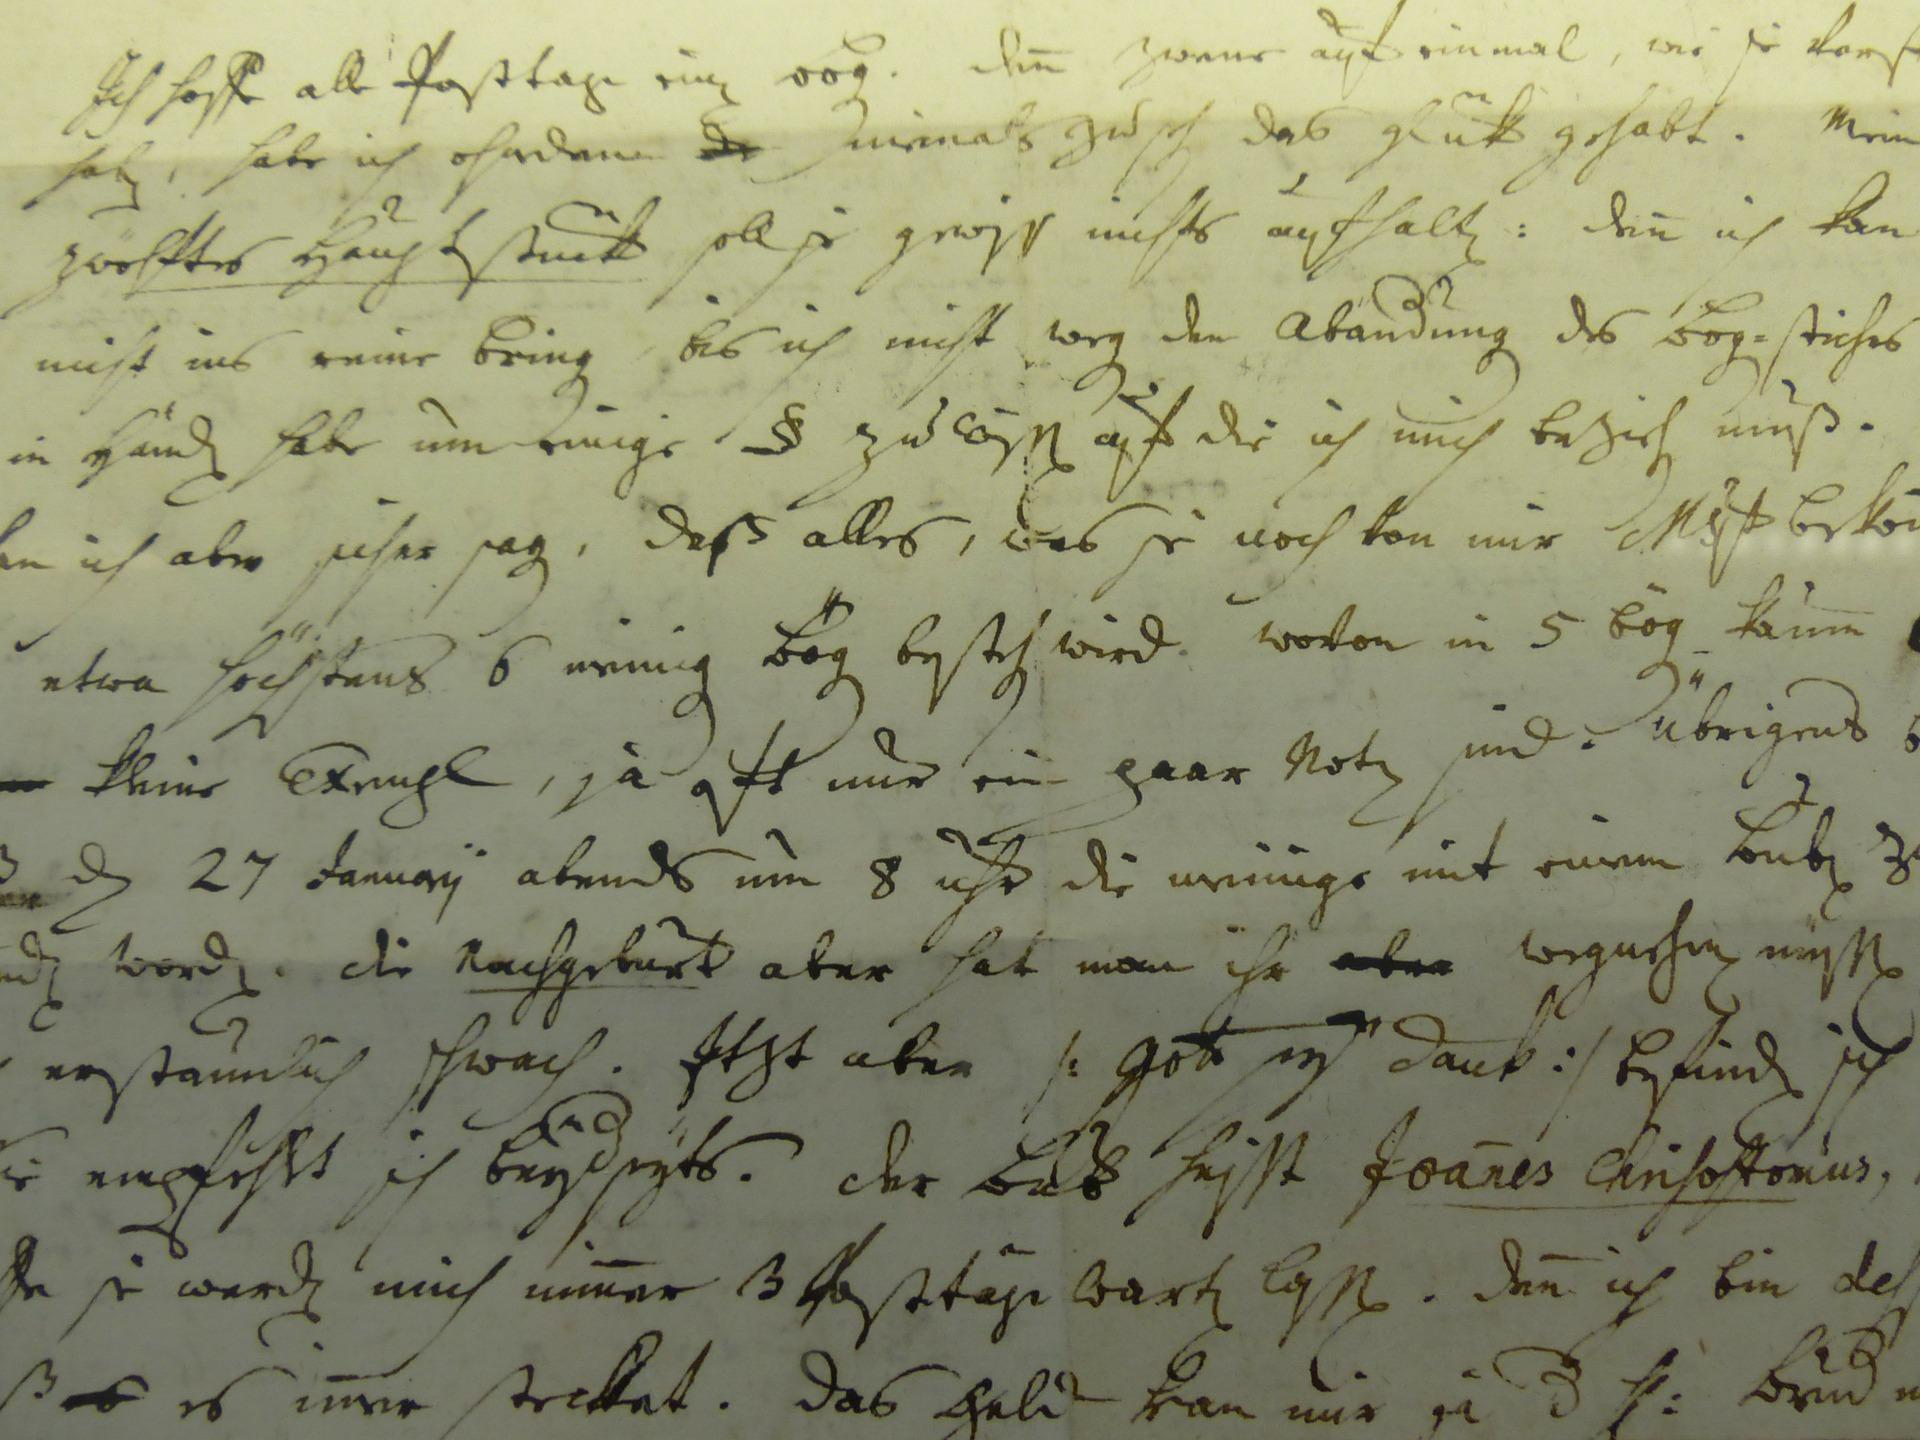 Ich hoffe alle Posttage ein bög. denn zwene auf einmal, wie sie
habe ich niemals zu seh das glück gehabt. Mein
zwölftes Hauptstück soll sie gewiss nichts aufhalten: denn ich kan
nicht ins reine bring bis ich nicht weg der Abänderung des bög=stiches
in Händen habe um einige § zu lösen auf die ich mich bezieh muß.
ich aber sicher sag, daß alles, was sie noch von mir Msst
etwa höchstens 6 wenig Bög besteh wird. wovon in 5 bög kaum
kleine Exempl, ja oft nur ein paar Noten sind. Übrigens
den 27 Januarij abends um 8 uhr die meinige mit einem Buben
worden. die Nachgeburt aber hat man ihr aber wegnehmen müssen
erstaunlich schwach. Itzt aber /: gott sey dank :/ befinden sich
empfehlt sich beyderseyts. der Bub heisst Joannes Chrisostomus,
sie werden mich immer 3 Posttäge warten lassen. denn ich bin
es immer stecket. das Geld kan mir ja H: